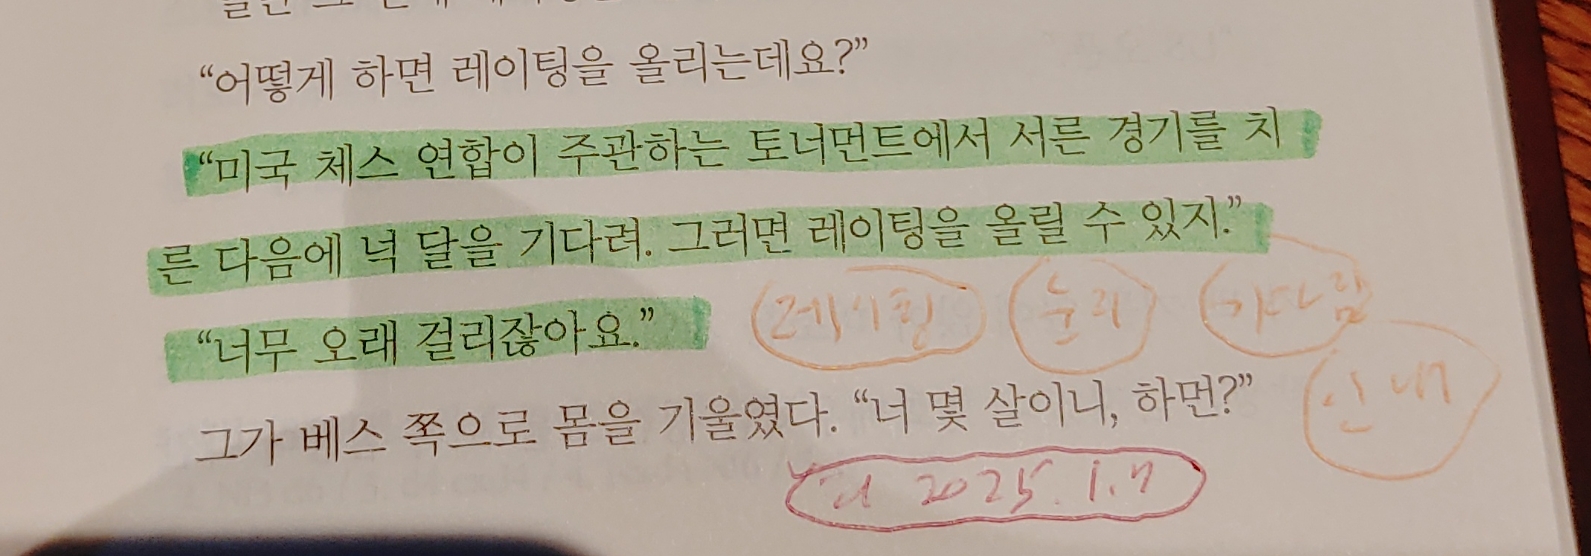 “어떻게 하면 레이팅을 올리는데요?”
“미국 체스 연합이 주관하는 토너먼트에서 서른 경기를 치
른 다음에 넉 달을 기다려. 그러면 레이팅을 올릴 수 있지.”
“너무 오래 걸리잖아요.” 레이팅 기다림
인내
그가 베스 쪽으로 몸을 기울였다. “너 몇 살이니, 하먼?”
2025.1.7